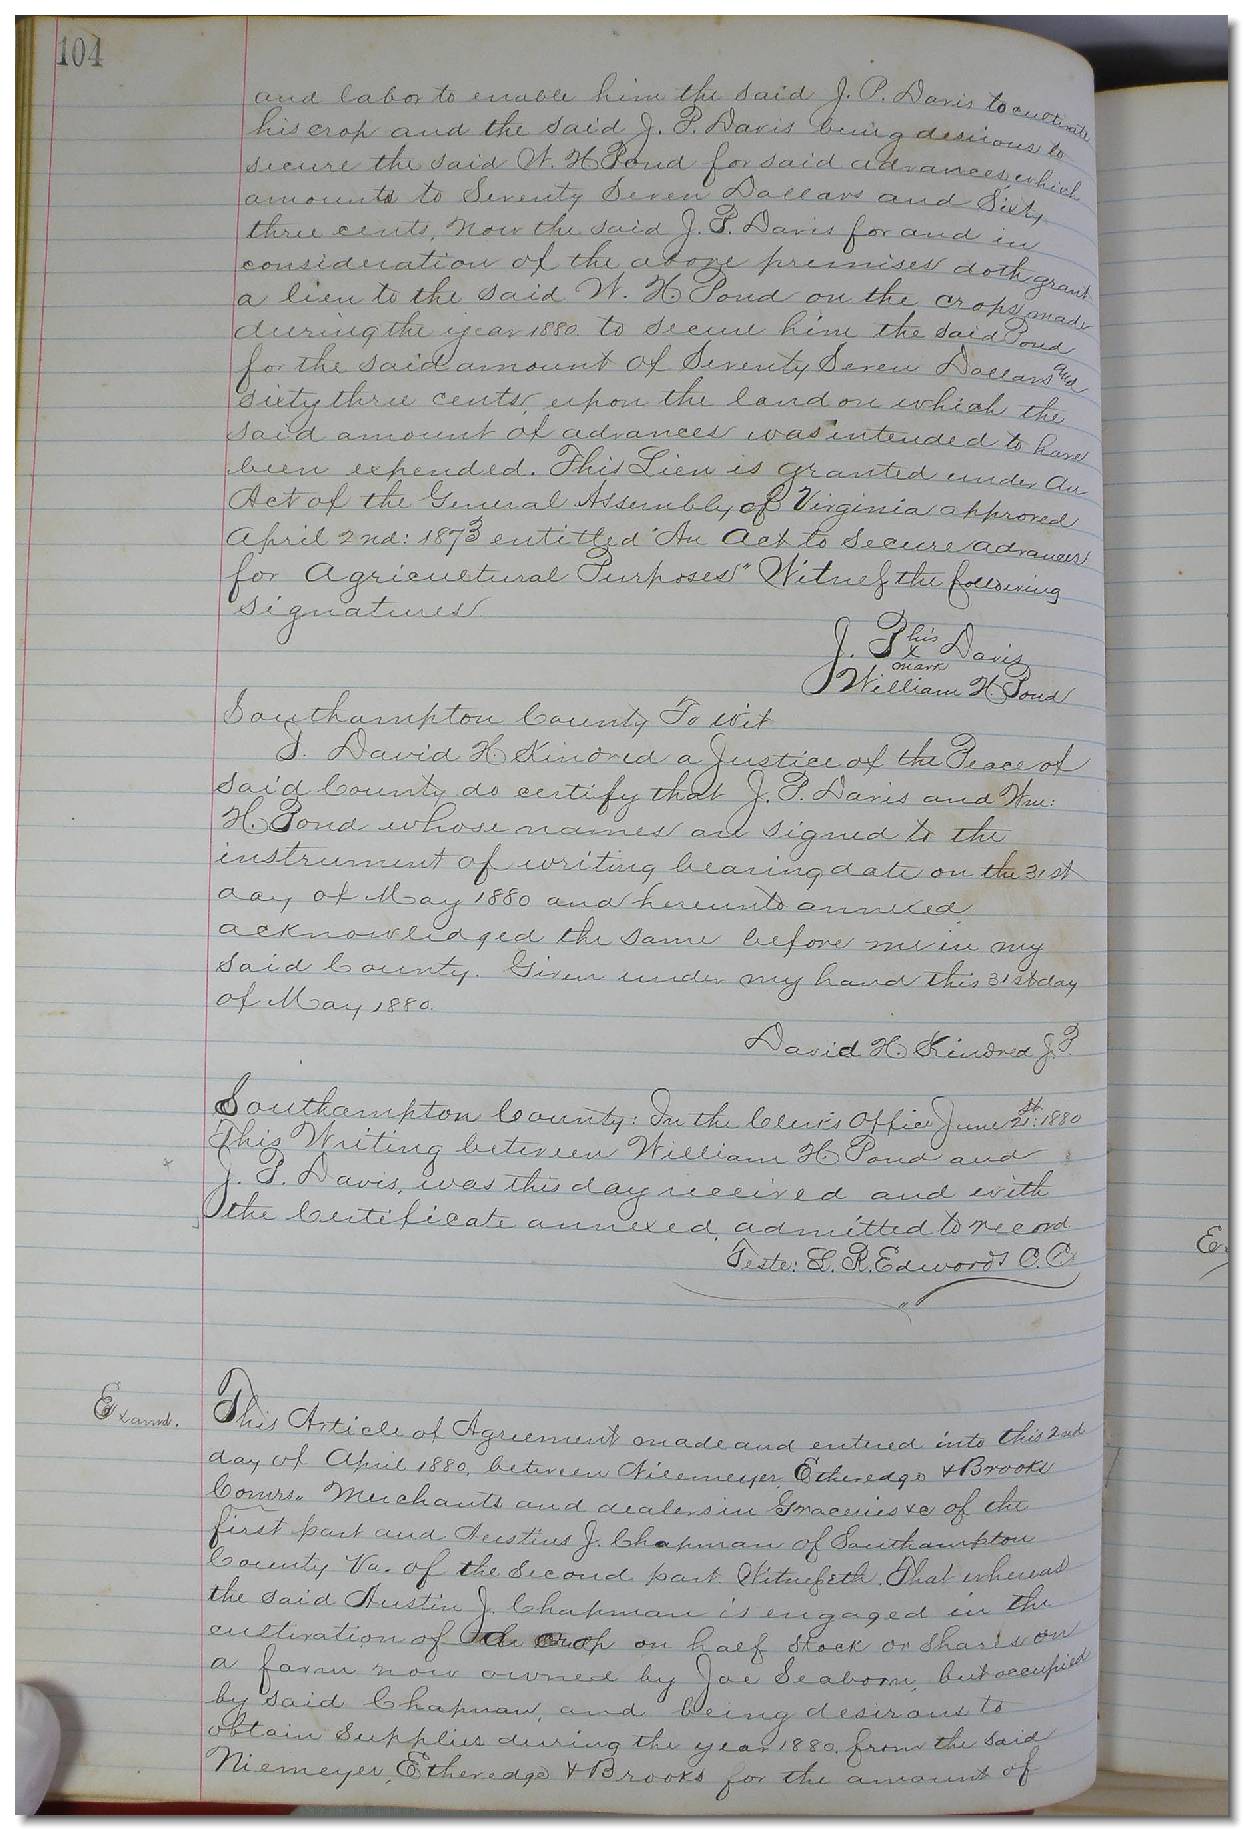 104
and labor to enable him the said J. P. Davis to cultivate
his crop and the said J. P. Davis being desirous to
secure the said W. H Pond for said advances, which
amounts to Seventy Seven Dollars and Sixty
three cents, now the said J. P. Davis for and in
consideration of the above premises doth grant
a lien to the said W. H Pond on the crops made
during the year 1880 to secure him the said Pond
for the said amount of Seventy Seven Dollars and
sixty three cents, upon the land on which the
said amount of advances was intended to have
been expended. This Lien is granted under an
Act of the General Assembly of Virginia approved
April 2nd: 1873 entitled "An Act to secure advances
for Agricultural Purposes" Witness the following
signatures
J. P his Davis
x
mark
William H Pond
Southampton County To wit
I. David H Kindred a Justice of the Peace of
said County do certify that J. P. Davis and Wm:
H. Pond whose names are signed to the
instrument of writing bearing date on the 31st
day of May 1880 and hereunto annexed
acknowledged the same before me in my
said County. Given under my hand this 31st day
of May 1880.
David H. Kindred J.P.
Southampton County: In the Clerk's Office June 21st: 1880
This Writing between William H Pond and
J. P. Davis, was this day received and with
the Certificate annexed, admitted to record
Teste: L. R. Edwards C.C.
Examd.
This Article of Agreement made and entered into this 2nd
day of April 1880, between Niemeyer, Etheredge & Brooks
Comrs. Merchants and dealers in Graceries &c of the
first part and Austius J. Chapman of Southampton
County Va. of the second part. Witnesseth. That whereas
the said Austin J. Chapman is engaged in the
cultivation of the crop on half stock or shares on
a farm now owned by Joe Seaborn, but occupied
by said Chapman, and being desirous to
obtain Supplies during the year 1880. from the said
Niemeyer, Etheredge & Brooks for the amount of